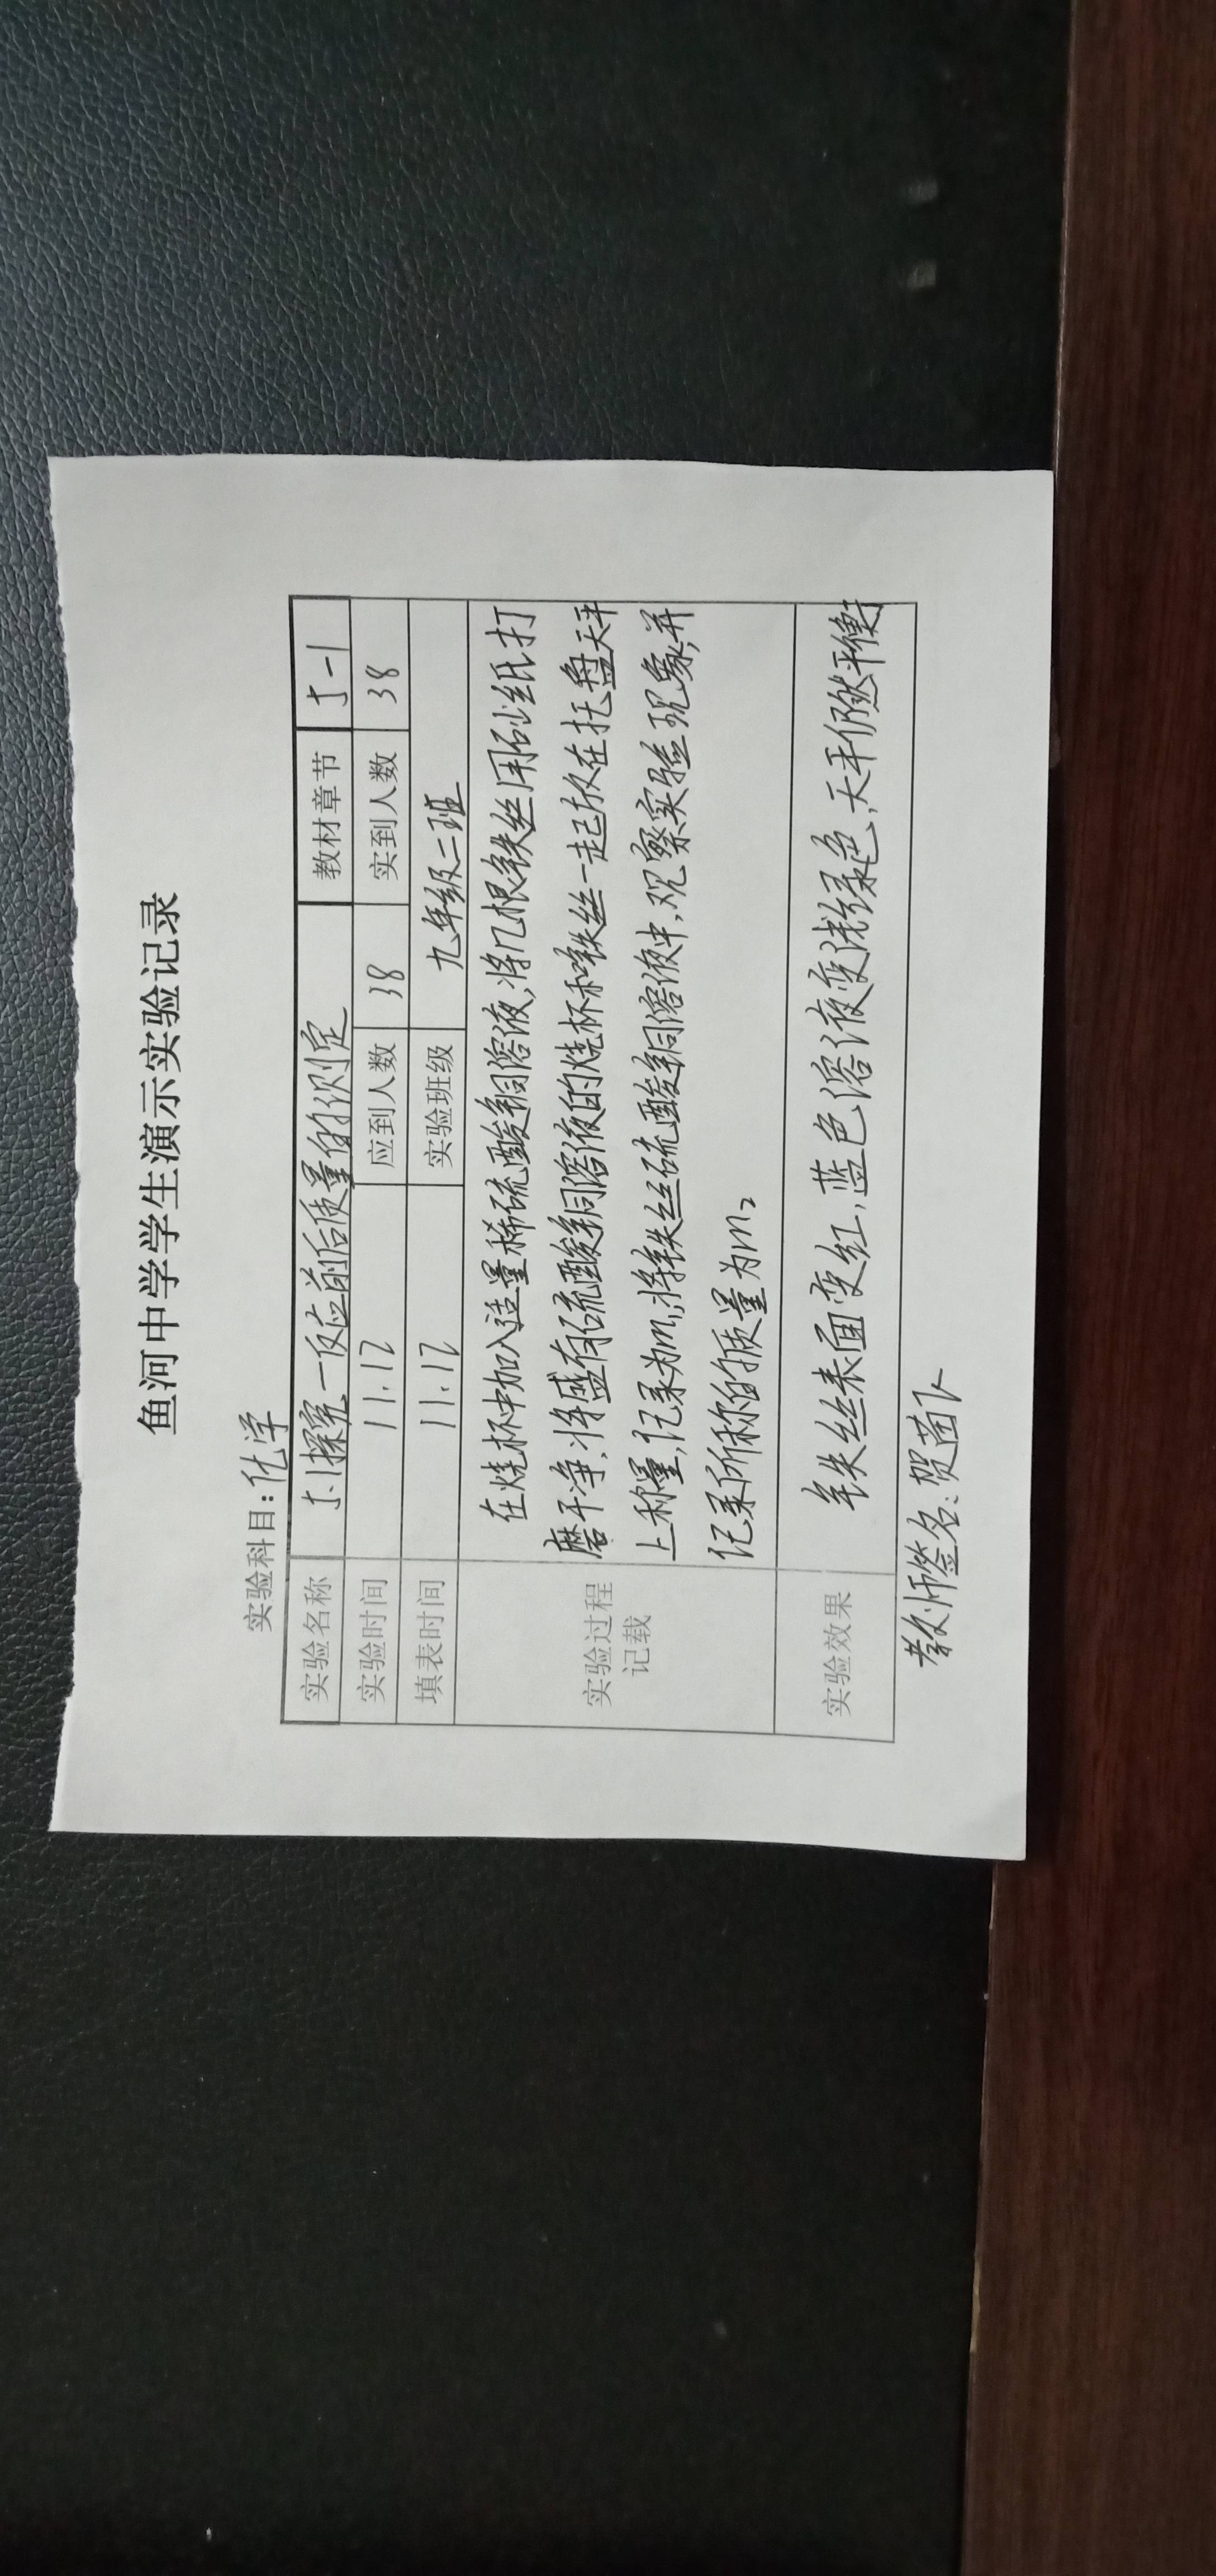 鱼河中学学生演示实验记录
实验科目:化学
实验名称 5.1探究一反应前后质量的测定 教材章节 5-1
实验时间 11.17 应到人数 38 实到人数 38
填表时间 11.17 实验班级 九年级二班
实验过程记载
在烧杯中加入适量稀硫酸铜溶液,将几根铁丝用砂纸打
磨干净,将盛有硫酸铜溶液的烧杯和铁丝一起放在托盘天平
上称量,记录为m₁,将铁丝硫酸铜溶液中,观察实验现象,并
记录所称的质量为m₂
实验效果 铁丝表面变红,蓝色溶液变浅绿色,天平仍然平衡
教师签名:贺